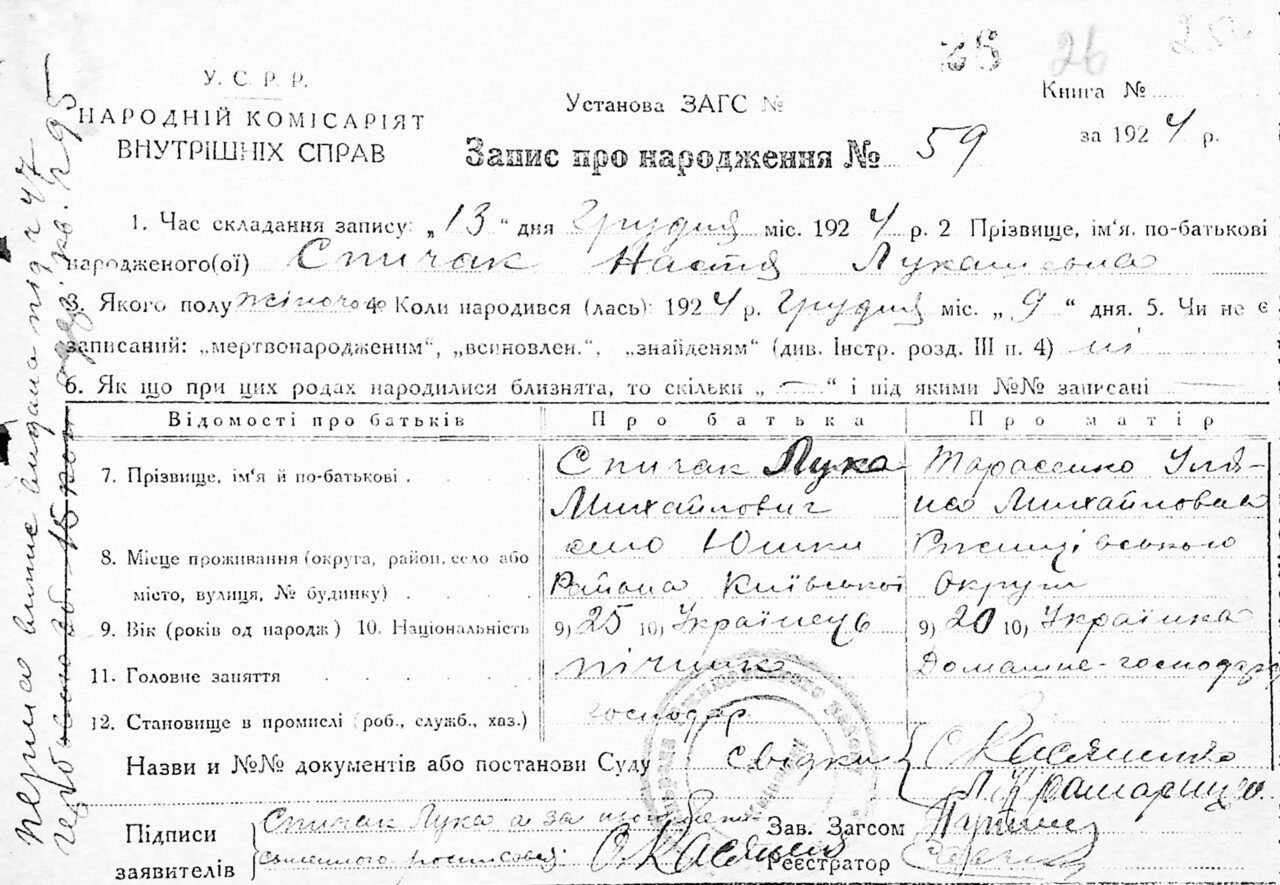 26
У. С. Р. Р.
НАРОДНІЙ КОМІСАРІЯТ
ВНУТРІШНІХ СПРАВ
Установа ЗАГС №
Книга №
за 1924 р.
Запис про народження № 59
1. Час складання запису: „13“ дня Грудня міс. 1924 р. 2 Прізвище, ім'я, по-батькові
народженого(ої) Спичак Настя Лукашовна
3. Якого полу жіночого 4. Коли народився (лась): 1924 р. Грудня міс. „9“ дня. 5. Чи не є
записаний: „мертвонародженим“, „всиновлен.“, „знайденям“ (див. Інстр. розд. III п. 4) ні
6. Як що при цих родах народилися близнята, то скільки „—“ і під якими №№ записані —
Відомості про батьків Про батька Про матір
7. Прізвище, ім'я й по-батькові Спичак Лука Тарасенко Уля-
Михайлович Михайловна
8. Місце проживання (округа, район, село або село Юшки Ржищівського
місто, вулиця, № будинку) Района Київської Округи
9. Вік (років од народж) 10. Національність 9) 25 10) Українець 9) 20 10) Українка
11. Головне заняття пічник Домашне-господар
12. Становище в промислі (роб., служб., хаз.) господар
Назви и №№ документів або постанови Суду свідки
Підписи Спичак Лука а за Зав. Загсом
заявителів Реєстратор